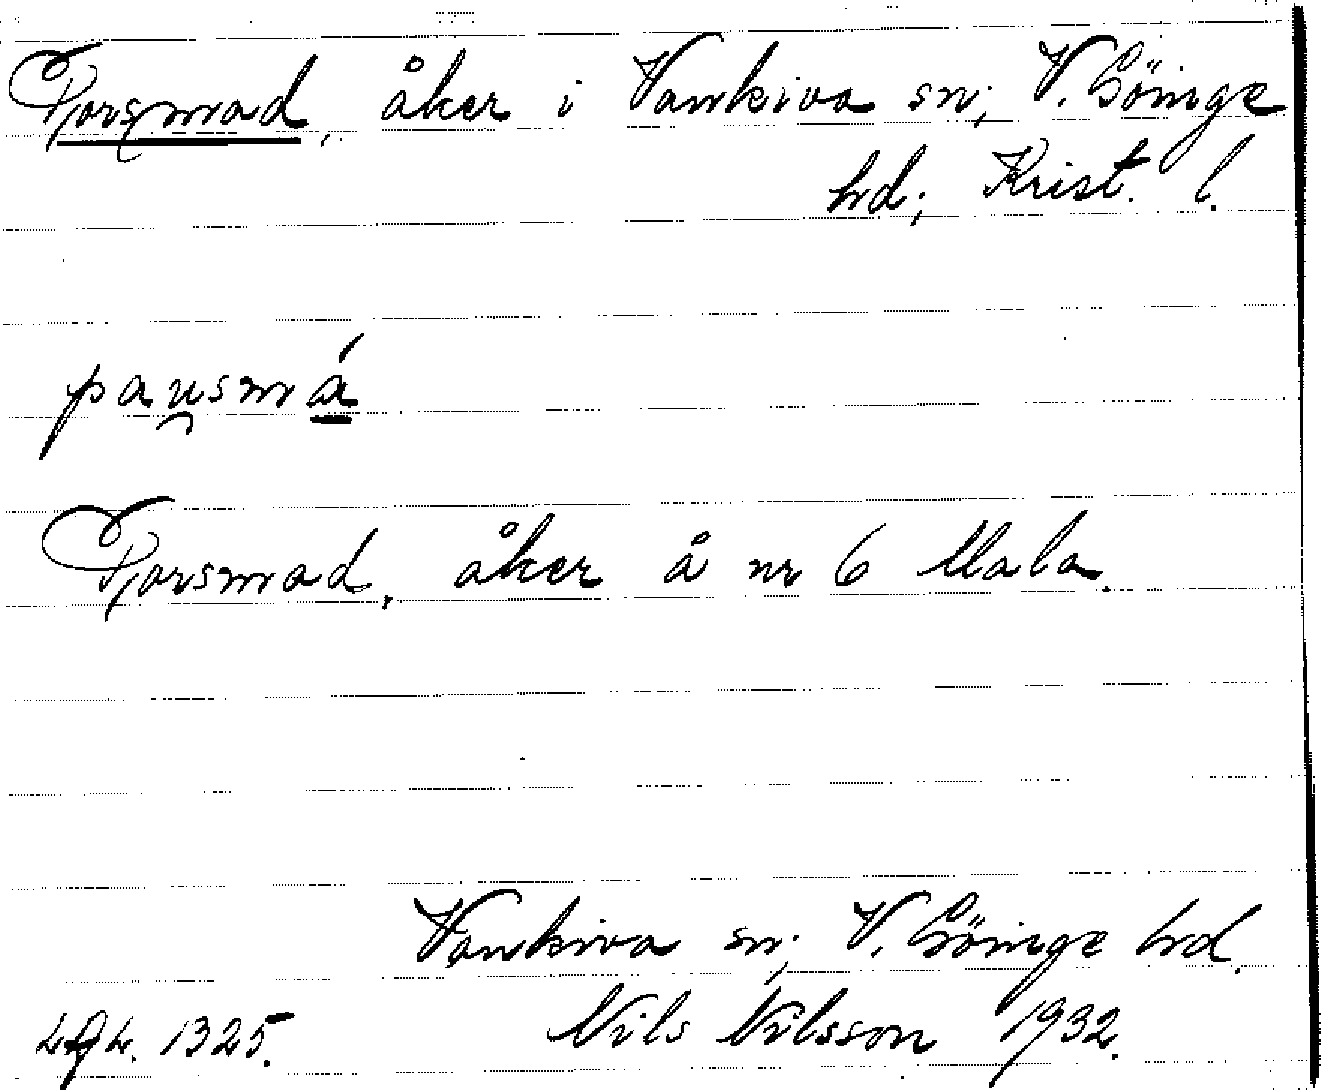 Porsmad, åker i Vankiva sn; V. Göinge
hd; Krist. l.
pau̯smá̲
Porsmad, åker å nr 6 Mala.
Vankiva sn; V. Göinge hd.
1325. Nils Nilsson 1932.